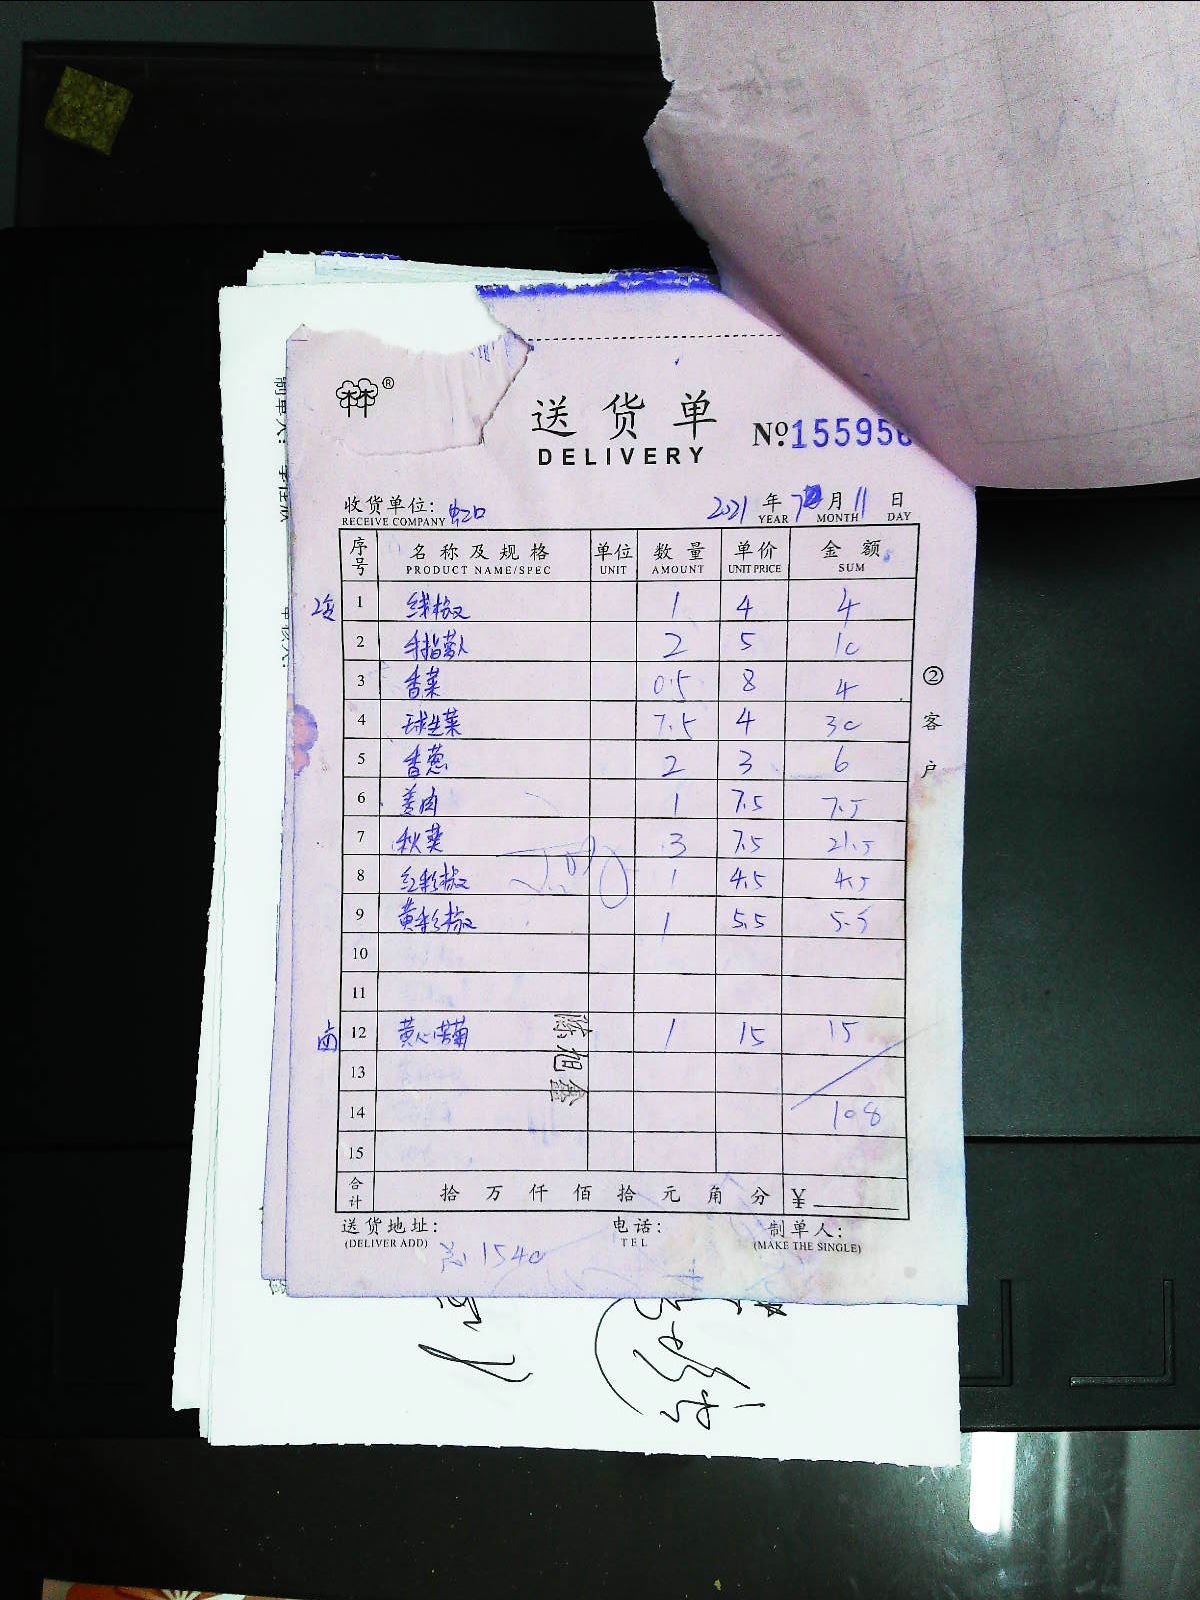 送货单
DELIVERY
№155956
收货单位: 虹口 2021 年 7 月 11 日
RECEIVE COMPANY YEAR MONTH DAY
序号 名称及规格 单位 数量 单价 金额
PRODUCT NAME/SPEC UNIT AMOUNT UNIT PRICE SUM
1 线椒 1 4 4
2 手指萝卜 2 5 10
3 香菜 0.5 8 4
4 球生菜 7.5 4 30
5 香葱 2 3 6
6 姜肉 1 7.5 7.5
7 秋葵 3 7.5 21.5
8 红彩椒 1 4.5 4.5
9 黄彩椒 1 5.5 5.5
10
11
卤 12 黄心苦菊 1 15 15
13
14 108
15
合计 拾 万 仟 佰 拾 元 角 分 ¥
送货地址: 电话: 制单人:
(DELIVER ADD) TEL (MAKE THE SINGLE)
总 1540
②客户
陈旭鑫
制单人: